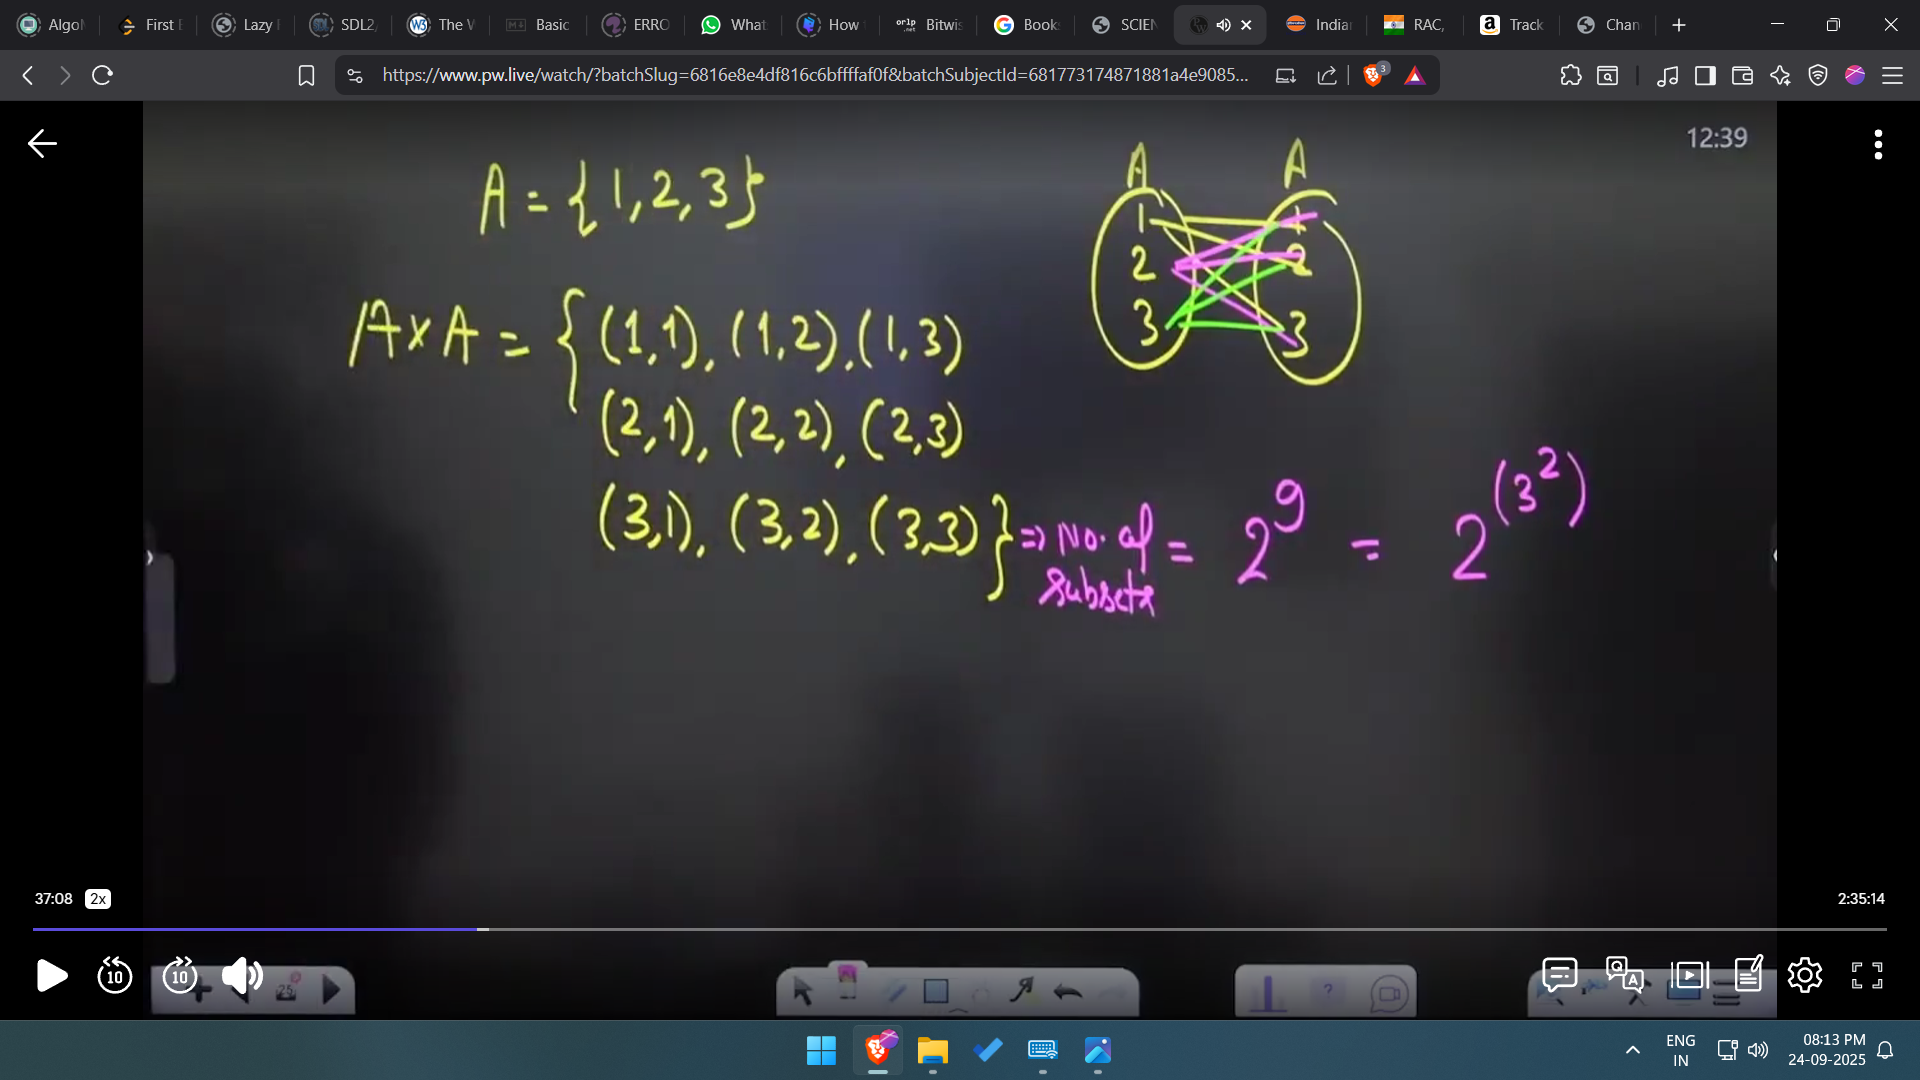 Algo
First
Lazy
SDL2,
The W
Basic
ERRO
What
How
Bitwis
Book
SCIEN
India
RAC,
Track
Chan
https://www.pw.live/watch/?batchSlug=6816e8e4df816c6bffffaf0f&batchSubjectId=681773174871881a4e9085...
3
12:39
A = {1,2,3}
A A
1 1
2 2
3 3
A×A = {(1,1), (1,2), (1,3)
(2,1), (2,2), (2,3)
(3,1), (3,2), (3,3)} ⇒ No. of subsets = 2^9 = 2^(3^2)
37:08 2x
2:35:14
10
10
25
?
ENG
IN
08:13 PM
24-09-2025